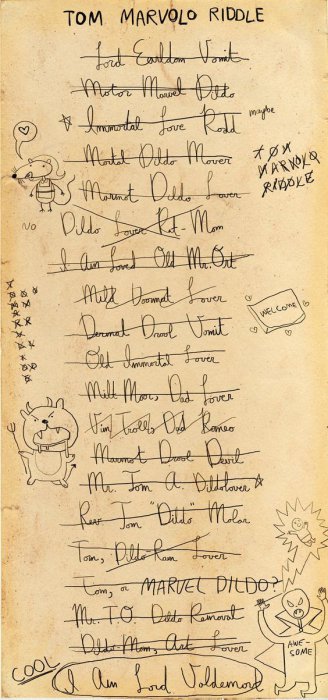 TOM MARVOLO RIDDLE
Lord Earldom Vomit
Motor Marvel Dildo
Immortal Love Rodd
maybe
Mortal Dildo Mover
TOM
MARVOLO
RIDDLE
Marmot Dildo Lover
NO
Dildo Lover Rat-Mom
I Am Loved Old Mr. Ort
Mild Doormat Lover
WELCOME
Dermat Drool Vomit
Old Immortal Lover
Milt Moor, Dad Lover
Vim Troll, Dad Romeo
Marmot Drool Devil
Mr. Tom A. Dildolover
Rev. Tom "Dildo" Molar
Tom, Dildo-Ram Lover
Tom, or MARVEL DILDO?
Mr. T.O. Dildo Removal
Dildo-Mom, Art Lover
AWE-
SOME
COOL
I Am Lord Voldemort